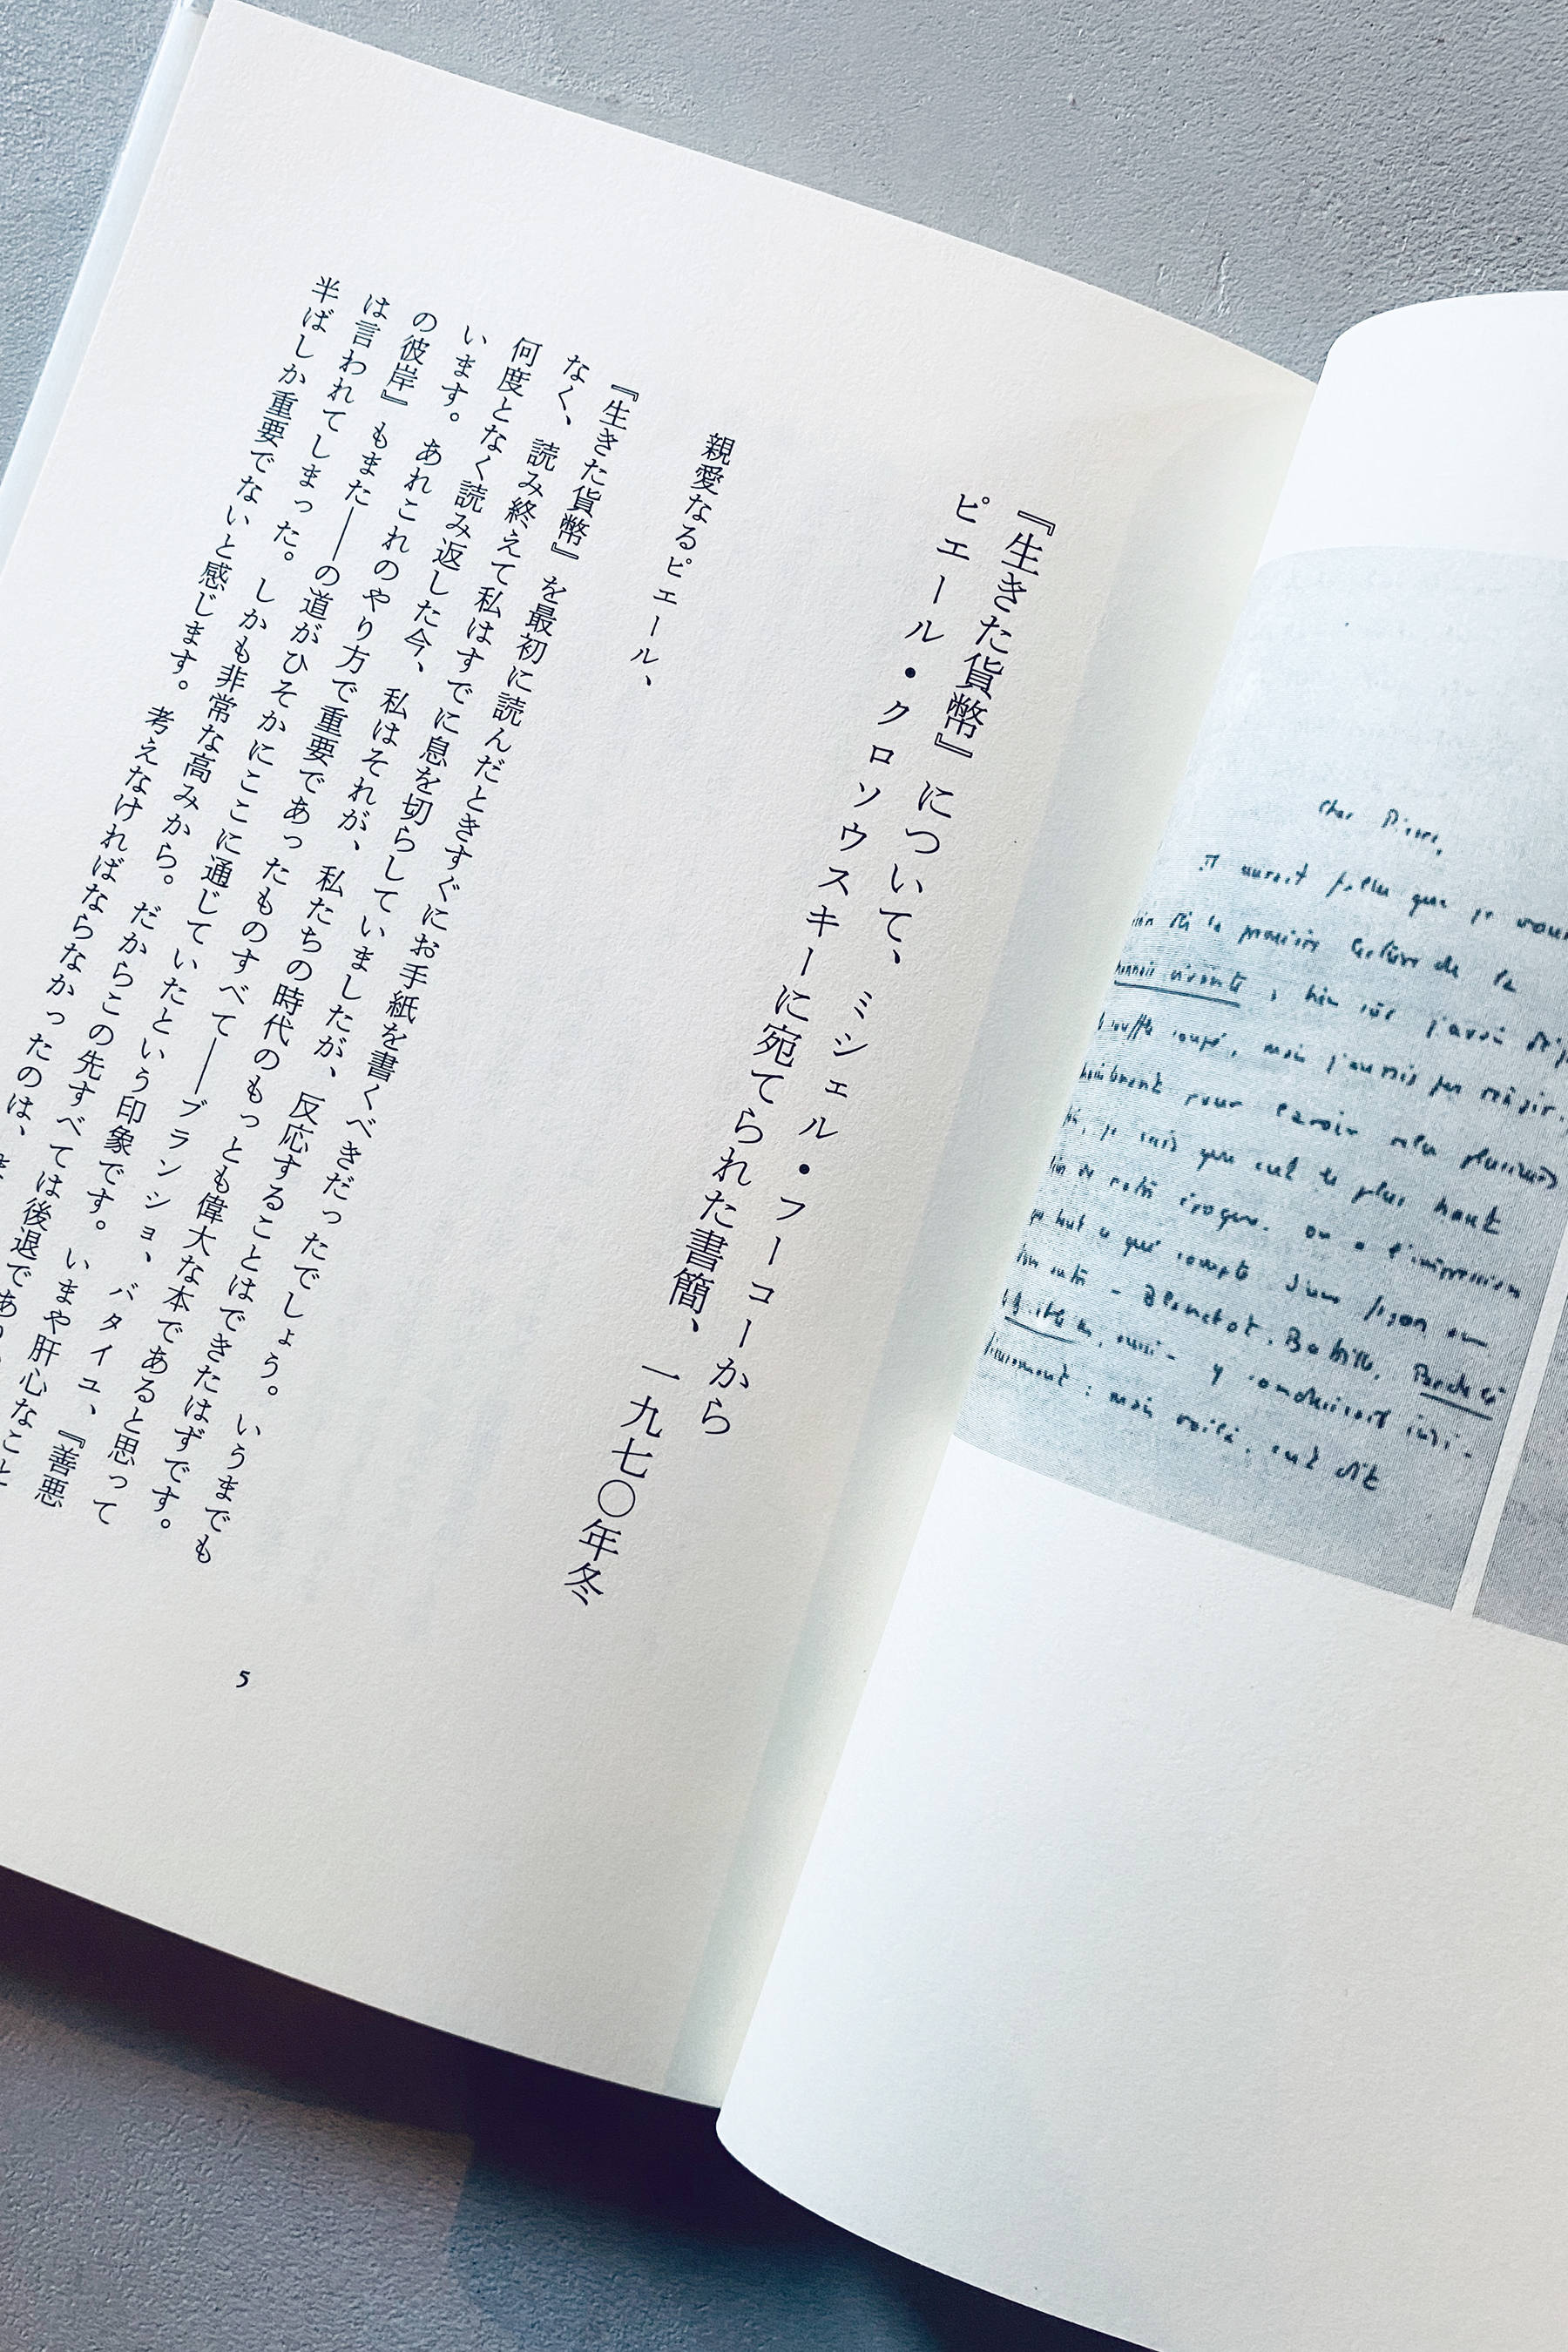 Cher Pierre,
Il aurait fallu que je vous
dès la première lecture de la
vivante ; bien sûr j'avais
souffle coupé, mais j'aurais pu réagir.
pour l'avoir relu plusieurs
je sais que c'est le plus haut
de notre époque. On a l'impression
que tout ce qui compte d'une façon ou
autre - Blanchot, Bataille, Par delà
aussi - y conduisait insi-
dieusement : mais voilà, c'est dit
『生きた貨幣』について、ミシェル・フーコーから
ピエール・クロソウスキーに宛てられた書簡、一九七〇年冬
親愛なるピエール、
『生きた貨幣』を最初に読んだときすぐにお手紙を書くべきだったでしょう。いうまでも
なく、読み終えて私はすでに息を切らしていましたが、反応することはできたはずです。
何度となく読み返した今、私はそれが、私たちの時代のもっとも偉大な本であると思って
います。あれこれのやり方で重要であったものすべて――ブランショ、バタイユ、『善悪
の彼岸』もまた――の道がひそかにここに通じていたという印象です。いまや肝心なこと
は言われてしまった。しかも非常な高みから。だからこの先すべては後退であ
半ばしか重要でないと感じます。考えなければならなかったのは、
5